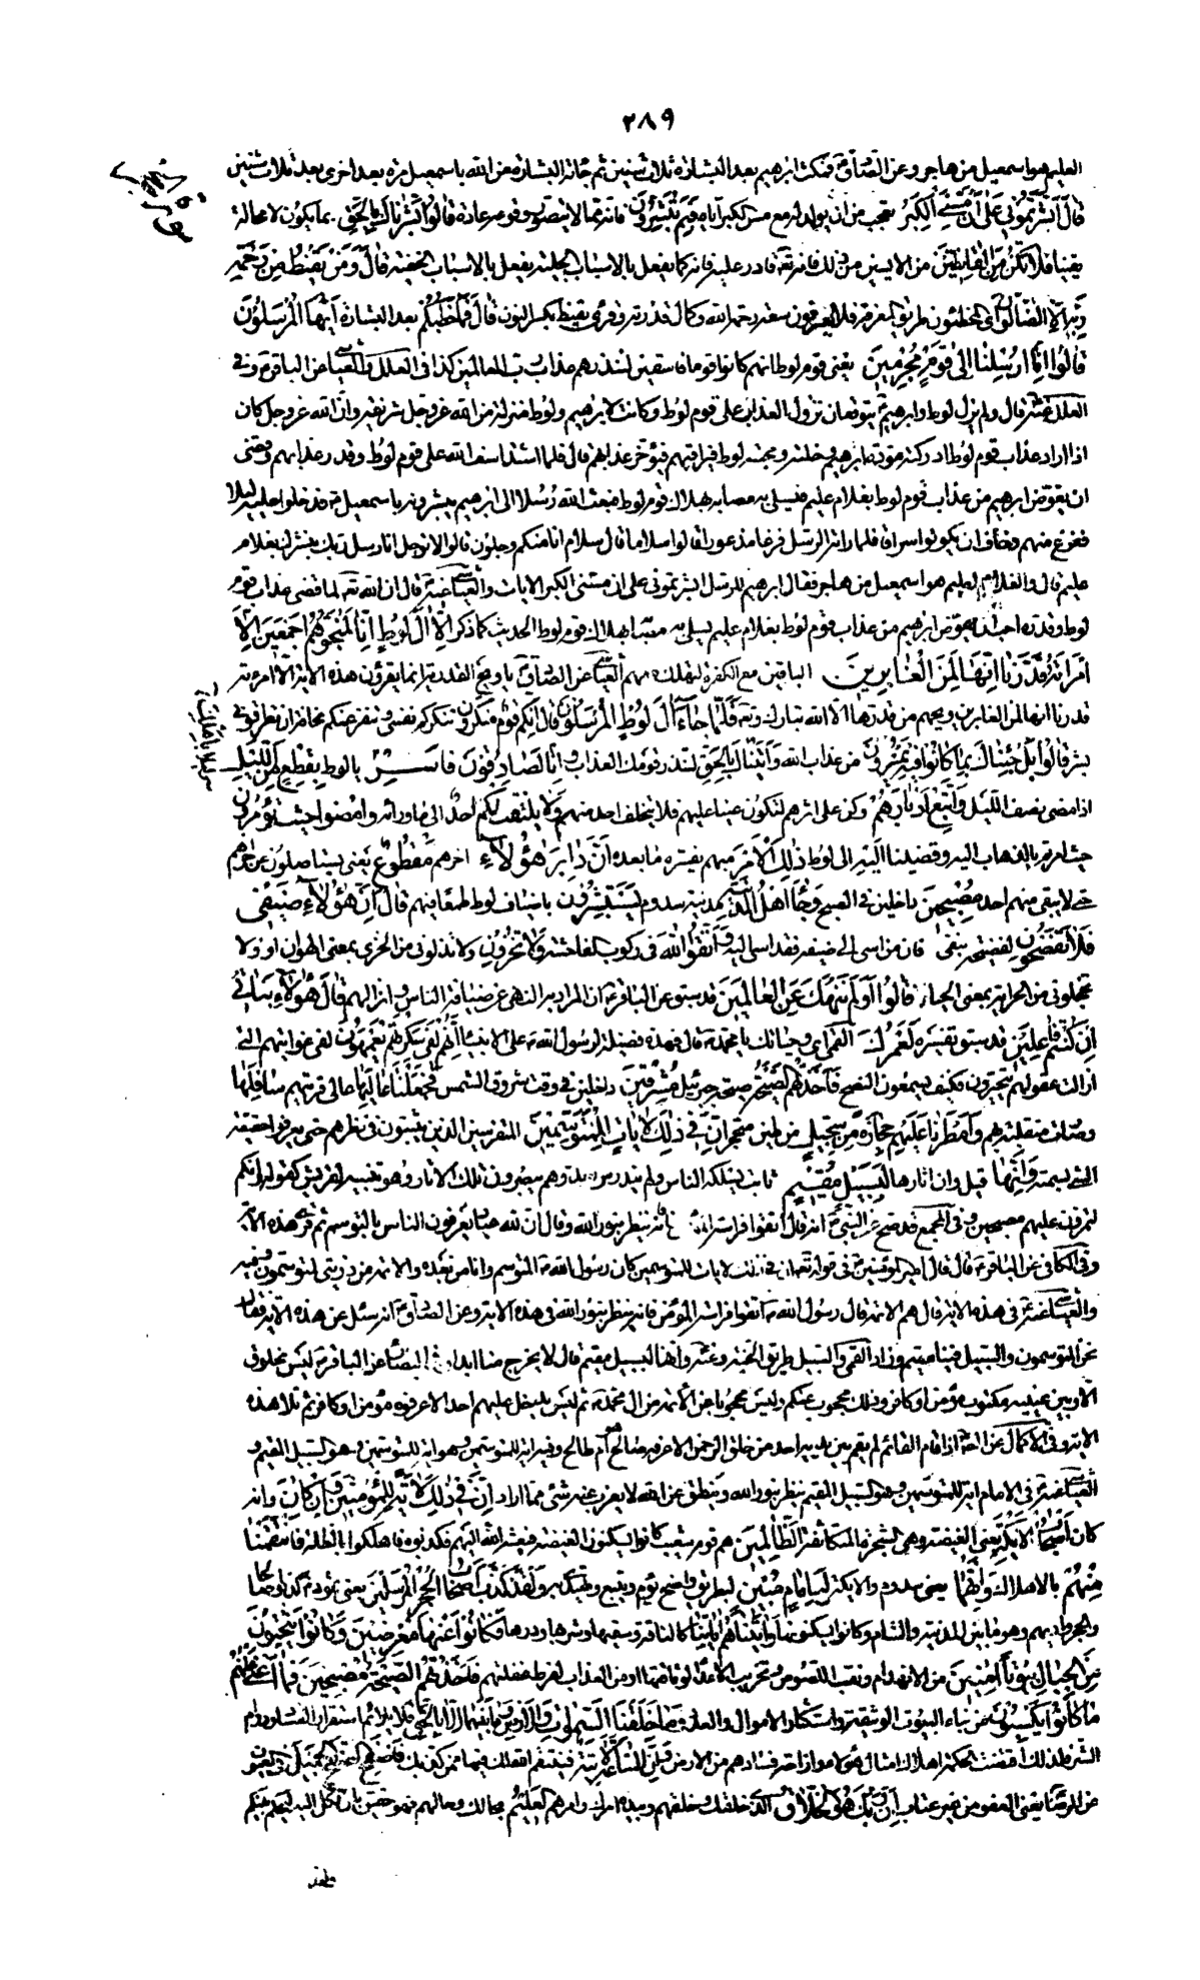 ٢٨٩
العليم هو اسمعيل من هاجر وعن الصادق فمكث ابرهيم بعد البشارة ثلاث سنين ثم جائته البشارة من الله باسمعيل مرة بعد اخرى بعد ثلاث سنين
قال أبشرتموني على أن مسني الكبر تعجب من ان يولد له مع مس الكبر اياه فبم تبشرون فانه مما لا يتصور وقوعه عادة قالوا بشرناك بالحق بما يكون لا محالة
يقينا فلا تكن من القانطين من الايسين من ذلك فانه تعالى قادر عليه فانه كما يفعل بالاسباب الجلية يفعل بالاسباب الخفية قال ومن يقنط من رحمة
ربه إلا الضالون اى المخطئون طريق المعرفة فلا يعرفون سعة رحمة الله وكمال قدرته وقرئ يقنط بكسر النون قال فما خطبكم بعد البشارة أيها المرسلون
قالوا إنا ارسلنا إلى قوم مجرمين يعنى قوم لوط انهم كانوا قوما فاسقين لننذرهم عذاب رب العالمين كذا فى العلل والعياشي عن الباقر وفى
العلل عنه قال ولم يزل لوط وابرهيم يتوقعان نزول العذاب على قوم لوط وكانت لابرهيم ولوط منزلة من الله عز وجل شريفة وان الله عز وجل كان
اذا اراد عذاب قوم لوط ادركته مودة ابرهيم وخلته ومحبة لوط فيراقبهم فيؤخر عذابهم قال فلما اشتد اسف الله على قوم لوط وقدر عذابهم وقضى
ان يعوض ابرهيم من عذاب قوم لوط بغلام عليم فيسلى به مصابه بهلاك قوم لوط فبعث الله رسلا الى ابرهيم يبشرونه باسمعيل فدخلوا عليه ليلا
ففزع منهم وخاف ان يكونوا سراق فلما راته الرسل فزعا مذعورا قالوا سلاما قال سلام انا منكم وجلون قالوا لا توجل انا رسل ربك نبشرك بغلام
عليم قال والغلام العليم هو اسمعيل من هاجر فقال ابرهيم للرسل ابشرتموني على ان مسنى الكبر الايات والعياشي عنه قال ان الله تعالى لما قضى عذاب قوم
لوط وقدره احب ان يعوض ابرهيم من عذاب قوم لوط بغلام عليم يسلى به مصابه بهلاك قوم لوط الحديث كما ذكر إلا آل لوط إنا لمنجوهم اجمعين إلا
امرأته قدرنا انها لمن الغابرين الباقين مع الكفرة لتهلك معهم العياشي عن الصادق
قدرنا انها لمن الغابرين فلما جاء آل لوط المرسلون قال إنكم قوم منكرون تنكركم نفسى وتنفر عنكم مخافة ان تطرقونى
بشر قالوا بل جئناك بما كانوا فيه يمترون من عذاب الله وآتيناك بالحق لتنذر قومك العذاب وإنا لصادقون فاسر بالوط بقطع من الليل
اذا مضى نصف الليل واتبع أدبارهم وكن على اثرهم لتكون عينا عليهم فلا يتخلف احد منهم ولا يلتفت منكم أحد الى ما ورائه وامضوا حيث تؤمرون
حيث امرتم بالذهاب اليه وقضينا اليه الى لوط ذلك الأمر مبهم يفسره ما بعده أن دابر هؤلاء اخرهم مقطوع يعنى يستاصلون عن اخرهم
حتى لا يبقى منهم احد مصبحين داخلين فى الصبح وجاء اهل المدينة مدينة سدوم يستبشرون باضياف لوط طمعا فيهم قال إن هؤلاء ضيفى
فلا تفضحون بفضيحة ضيفى فان من اسى الى ضيفه فقد اسى اليه واتقوا الله فى ركوب الفاحشة ولا تخزون ولا تذلونى من الخزى بمعنى الهوان او ولا
تخجلونى من الخزاية بمعنى الحياء قالوا أولم ننهك عن العالمين قد سبق عن الباقر ان المراد به النهى عن ضيافة الناس وانزالهم قال هؤلاء بناتى
إن كنتم فاعلين قد سبق تفسيره لعمرك القمى اى وحياتك يا محمد قال فهذه فضيلة لرسول الله على الانبياء إنهم لفى سكرتهم يعمهون لفى غوايتهم التى
ازالت عقولهم يتحيرون فكيف يسمعون النصح فأخذتهم الصيحة صيحة جبرئيل مشرقين داخلين فى وقت شروق الشمس فجعلنا عاليها عالى قريتهم سافلها
وصارت منقلبة بهم وأمطرنا عليهم حجارة من سجيل من طين متحجر إن في ذلك لآيات للمتوسمين المتفرسين الذين يتثبتون فى نظرهم حتى يعرفوا حقيقة
الشئ بسمته وإنها قيل وان اثارها لبسبيل مقيم ثابت يسلكه الناس ولم يندرس بعد وهم يبصرون تلك الاثار وهو تنبيه لقريش كقوله انكم
لتمرون عليهم مصبحين وفى المجمع قد صح عن النبي انه قال اتقوا فراسة المؤمن فانه ينظر بنور الله وقال ان لله عبادا يعرفون الناس بالتوسم ثم قرء هذه الاية
وفى الكافى عن الباقر قال قال امير المؤمنين فى قوله تعالى ان فى ذلك لايات للمتوسمين كان رسول الله المتوسم وانا من بعده والائمة من ذريتى المتوسمون وفيه
والعياشي عنه فى هذه الاية قال هم الائمة قال رسول الله اتقوا فراسة المؤمن فانه ينظر بنور الله فى هذه الاية وعن الصادق انه سئل عن هذه الاية فقال
نحن المتوسمون والسبيل فينا مقيم وزاد القمى والسبيل طريق الجنة وعنه وانها لبسبيل مقيم قال لا يخرج منا ابدا البصائر عن الباقر ليس مخلوق
الا وبين عينيه مكتوب مؤمن او كافر وذلك محجوب عنكم وليس محجوبا عن الائمة من ال محمد ثم ليس يدخل عليهم احد الا عرفوه مؤمن او كافر ثم تلا هذه
الاية وفى الاكمال عن الصادق اذا قام القائم لم يقم بين يديه احد من خلق الرحمن الا عرفه صالح هو ام طالح وفيه اية للمتوسمين وهو السبيل المقيم و
العياشي عنه فى الامام اية للمتوسمين وهو السبيل المقيم ينظر بنور الله وينطق عن الله لا يعزب عنه شئ مما اراد إن في ذلك لآية للمؤمنين وإن كان وانه
كان أصحاب الأيكة يعنى الغيضة وهى الشجرة المتكاثفة لظالمين هم قوم شعيب كانوا يسكنون الغيضة فبعثه الله اليهم فكذبوه فاهلكوا بالظلة فانتقمنا
منهم بالاهلاك وإنهما يعنى سدوم والايكة لبإمام مبين لبطريق واضح يؤم ويتبع ويهتدى به ولقد كذب أصحاب الحجر المرسلين يعنى ثمود كذبوا صالحا
والحجر واد بهم وهو ما بين المدينة والشام وكانوا يسكنونها وآتيناهم آياتنا كالناقة وسقيها وشربها ودرها فكانوا عنها معرضين وكانوا ينحتون
من الجبال بيوتا آمنين من الانهدام ونقب اللصوص وتخريب الاعداء لوثاقتها او من العذاب لفرط غفلتهم فأخذتهم الصيحة مصبحين فما أغنى عنهم
ما كانوا يكسبون من بناء البيوت الوثيقة واستكثار الاموال والعدد وما خلقنا السموات والأرض وما بينهما إلا بالحق فلا يلائم استمرار الفساد ودوام
الشر فلذلك اقتضت الحكمة اهلاك امثال هؤلاء وازاحة فسادهم من الارض وإن الساعة لآتية فينتقم الله لك فيها ممن كذبك فاصفح الصفح الجميل فى العيون
عن الرضا يعنى العفو من غير عتاب إن ربك هو الخلاق الذى خلقك وخلقهم وبيده امرك وامرهم العليم بحالك وحالهم فهو حقيق بان تكل اليه ليحكم بينكم